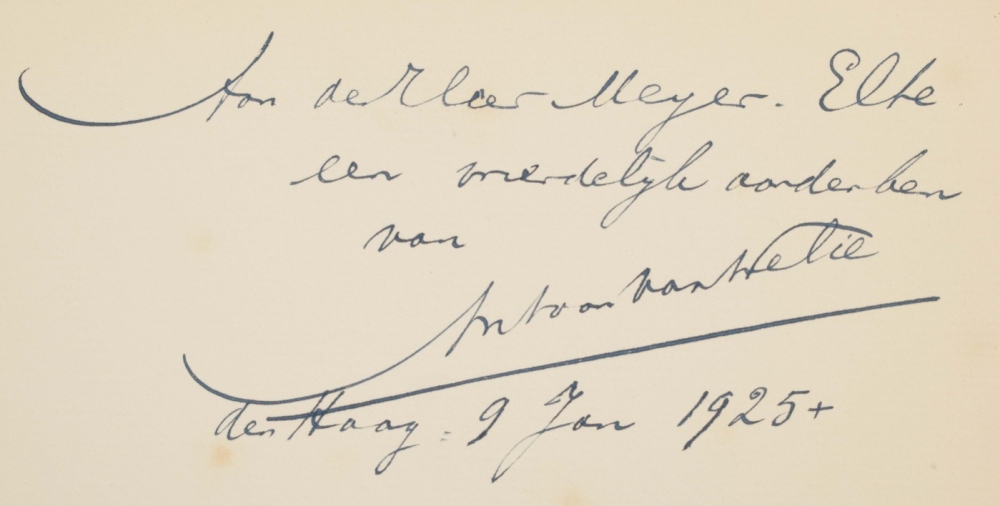 Aan de Heer Meyer. Elte
een vriendelijk aandenken
van
Antoon van Welie
den Haag = 9 Jan 1925+